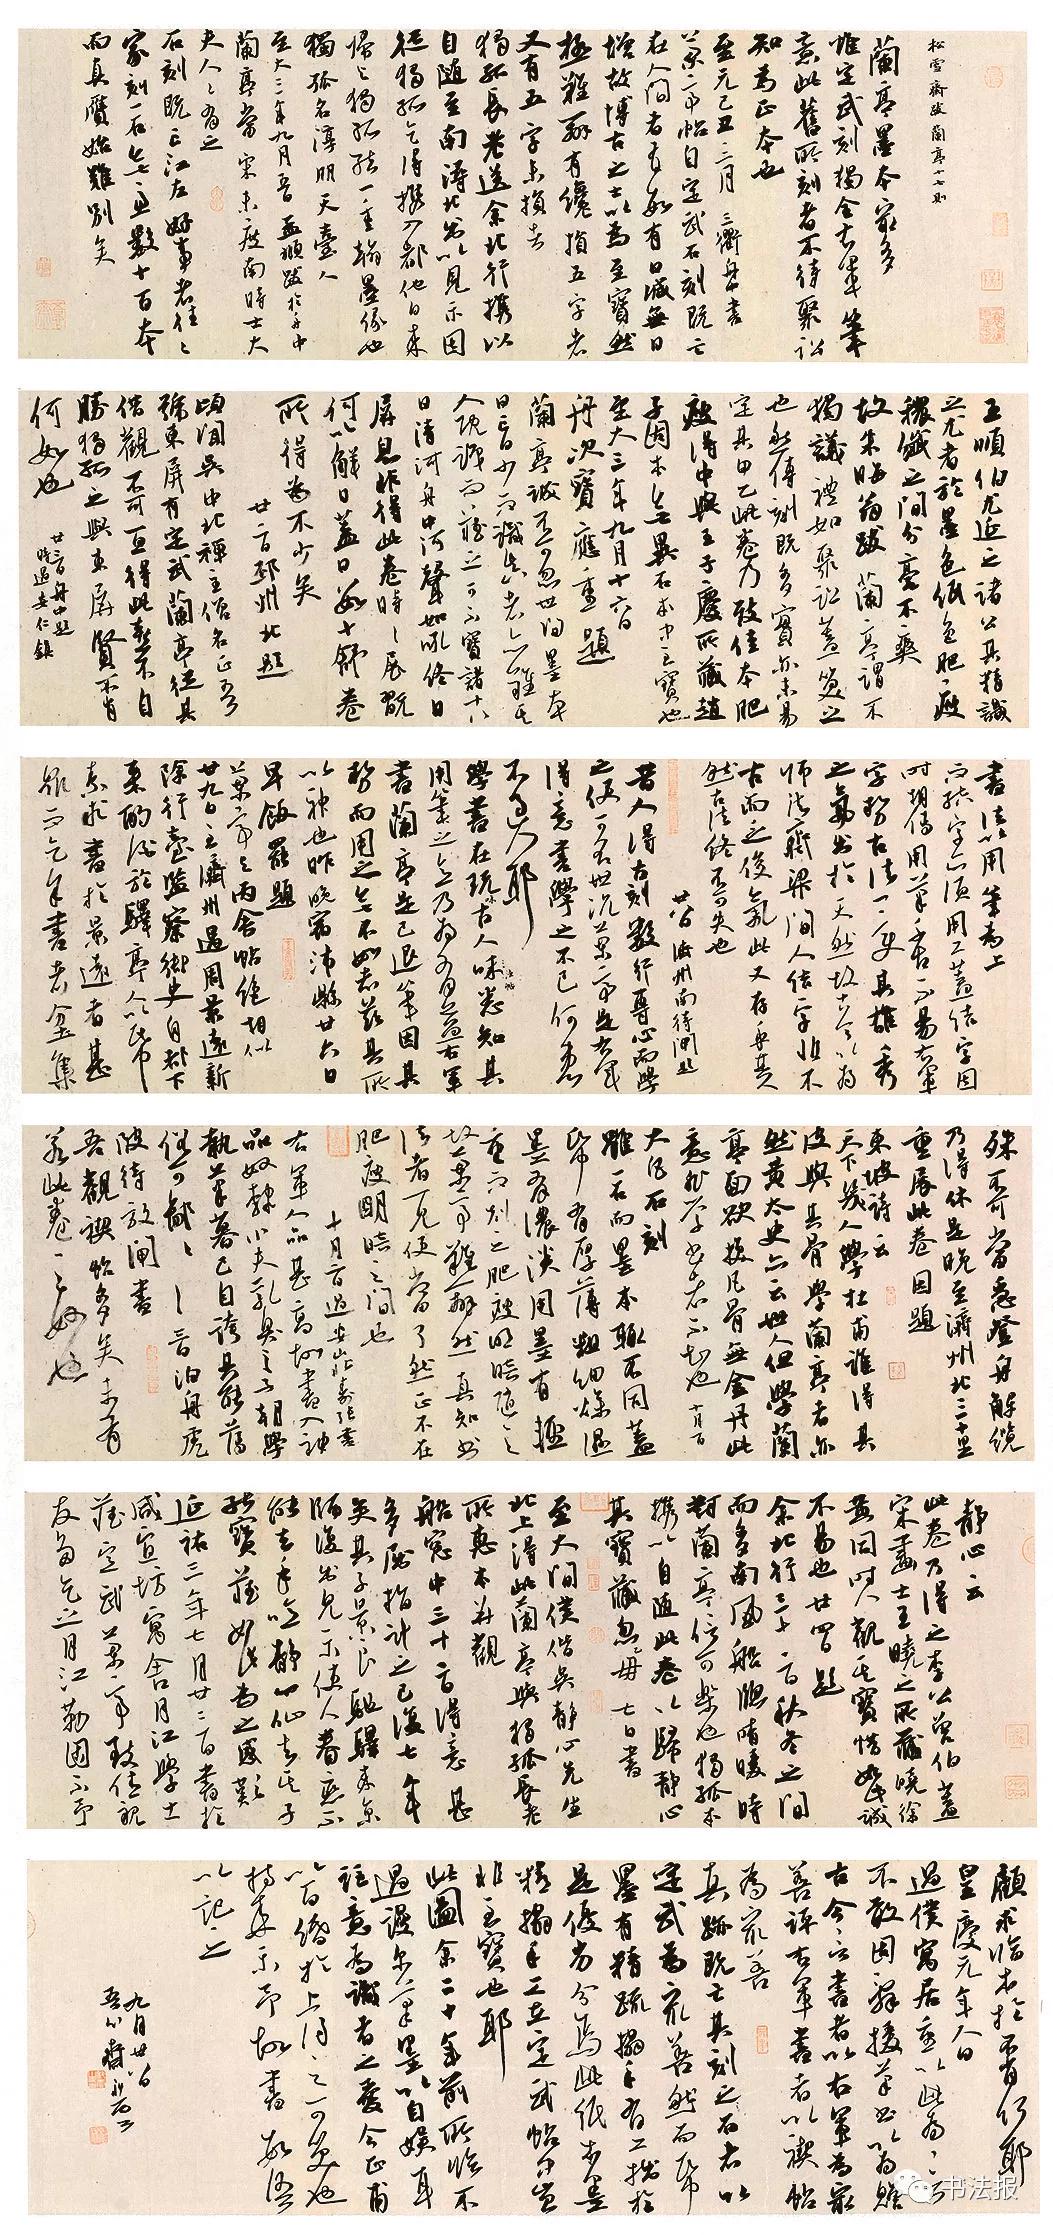 松雪齋跋蘭亭十七則
蘭亭墨本最多
惟定武刻獨全右軍筆
意此舊所刻者不待聚訟
知為正本也
至元己丑三月三衢舟中書
蘭亭帖自定武石刻既亡
在人間者有數有日減無日
增故博古之士以為至寶然
極難辨有纔損五字者
又有五字未損者
獨孤長老送余北行攜以
自隨至南潯北出以見示因
從獨孤乞得攜入都他日來
歸與獨孤結一重翰墨緣也
獨孤名淳朋天臺人
至大三年九月五日孟頫跋於舟中
蘭亭當宋未度南時士大
夫人人有之
石刻既亡江左好事者往往
家刻一石無慮數十百本
而真贗始難別矣
王順伯尤延之諸公其精識
之尤者於墨色紙色肥瘦
穠纖之間分毫不爽
故朱晦翁跋蘭亭謂不
獨議禮如聚訟蓋笑之
也然傳刻既多實亦未易
定其甲乙此卷乃致佳本肥
瘦得中與王子慶所藏趙
子固本無異石本中至寶也
至大三年九月十六日
舟次寶應重題
蘭亭誠不可忽世間墨本
日亡日少而識真者蓋難其
人既識而藏之可不寶諸十八
日清河舟中河聲如吼終日
屏息非得此卷時時展翫
何以解日蓋日數十舒卷
所得為不少矣
廿二日邳州北題
頃聞吳中北禪主僧名正吾
號東屏有定武蘭亭從其
借觀不可一旦得此喜不自
勝獨孤之與東屏賢不肖
何如也
廿三日舟中題
時過安仁鎮
書法以用筆為上
而結字亦須用工蓋結字因
時相傳用筆千古不易右軍
字勢古法一變其雄秀
之氣出於天然故古今以為
師法齊梁間人結字非不
古而乏俊氣此又存乎其人
然古法終不可失也
廿八日濟州南待閘題
昔人得古刻數行專心而學
之便可名世況蘭亭是右軍
得意書學之不已何患
不過人耶
學書在玩味古人法帖悉知其
用筆之意乃為有益右軍
書蘭亭是已退筆因其
勢而用之無不如志茲其所
以神也昨晚宿沛縣廿六日
早飯罷題
蘭亭與丙舍帖絕相似
廿九日至濟州遇周景遠新
除行臺監察御史自都下
來酌酒於驛亭人以紙
素求書於景遠者甚
眾而乞余書者坌集
殊不可當急登舟解纜
乃得休是晚至濟州北三十里
重展此卷因題
東坡詩云
天下幾人學杜甫誰得其
皮與其骨學蘭亭者亦
然黃太史亦云世人但學蘭
亭面欲換凡骨無金丹此
意非學書者不知也 十月一日
大凡石刻
雖一石而墨本輒不同蓋
紙有厚薄粗細燥濕
墨有濃淡用墨有輕
重而刻之肥瘦明暗隨之
故蘭亭難辨然真知書
法者一見便當了然正不在
肥瘦明暗之間也
十月二日過安山北壽張書
右軍人品甚高故書入神
品奴隸小夫乳臭之子朝學
執筆暮已自誇其能薄
俗可鄙可鄙 三日泊舟虎
陂待放閘書
吾觀禊帖多矣未有
若此卷之妙者也
靜心云
此卷乃得之李公曾伯蓋
宋畫士王曉之所藏曉徐
黃同時人觀其寶惜如此誠
不易也廿四日題
余北行三十二日秋冬之間
而多南風船窗晴暖時
對蘭亭信可樂也獨孤本
攜以自隨此卷以歸靜心
其寶藏忽忽毋 七日書
至大間僕偕吳靜心先生
北上得此蘭亭與獨孤長老
所惠本並觀
船窗中三十二日得意甚
多屈指計之已復七年
矣其子景良馳驛來京
師復出見示使人眷戀不
能去手噫靜心仙去其子
能寶藏如此尚為之感歎
延祐三年七月廿二日書於
咸宜坊寓舍月江學士
藏定武蘭亭致佳親
友多乞之月江勒圖示予
顧求臨本於不肖何耶
皇慶元年人日
過僕寓居重以此為言
不敢固辭援筆書以為贈
古今言書者以右軍為最
善評右軍書者以禊帖
為最善
真跡既亡其刻之石者以
定武為最善然而紙
墨有精疏搨手有工拙於
是優劣分焉此紙與墨
精搨手工在定武帖中豈
非至寶也耶
此圖余二十年前所作不
過漫爾筆墨以自娛耳